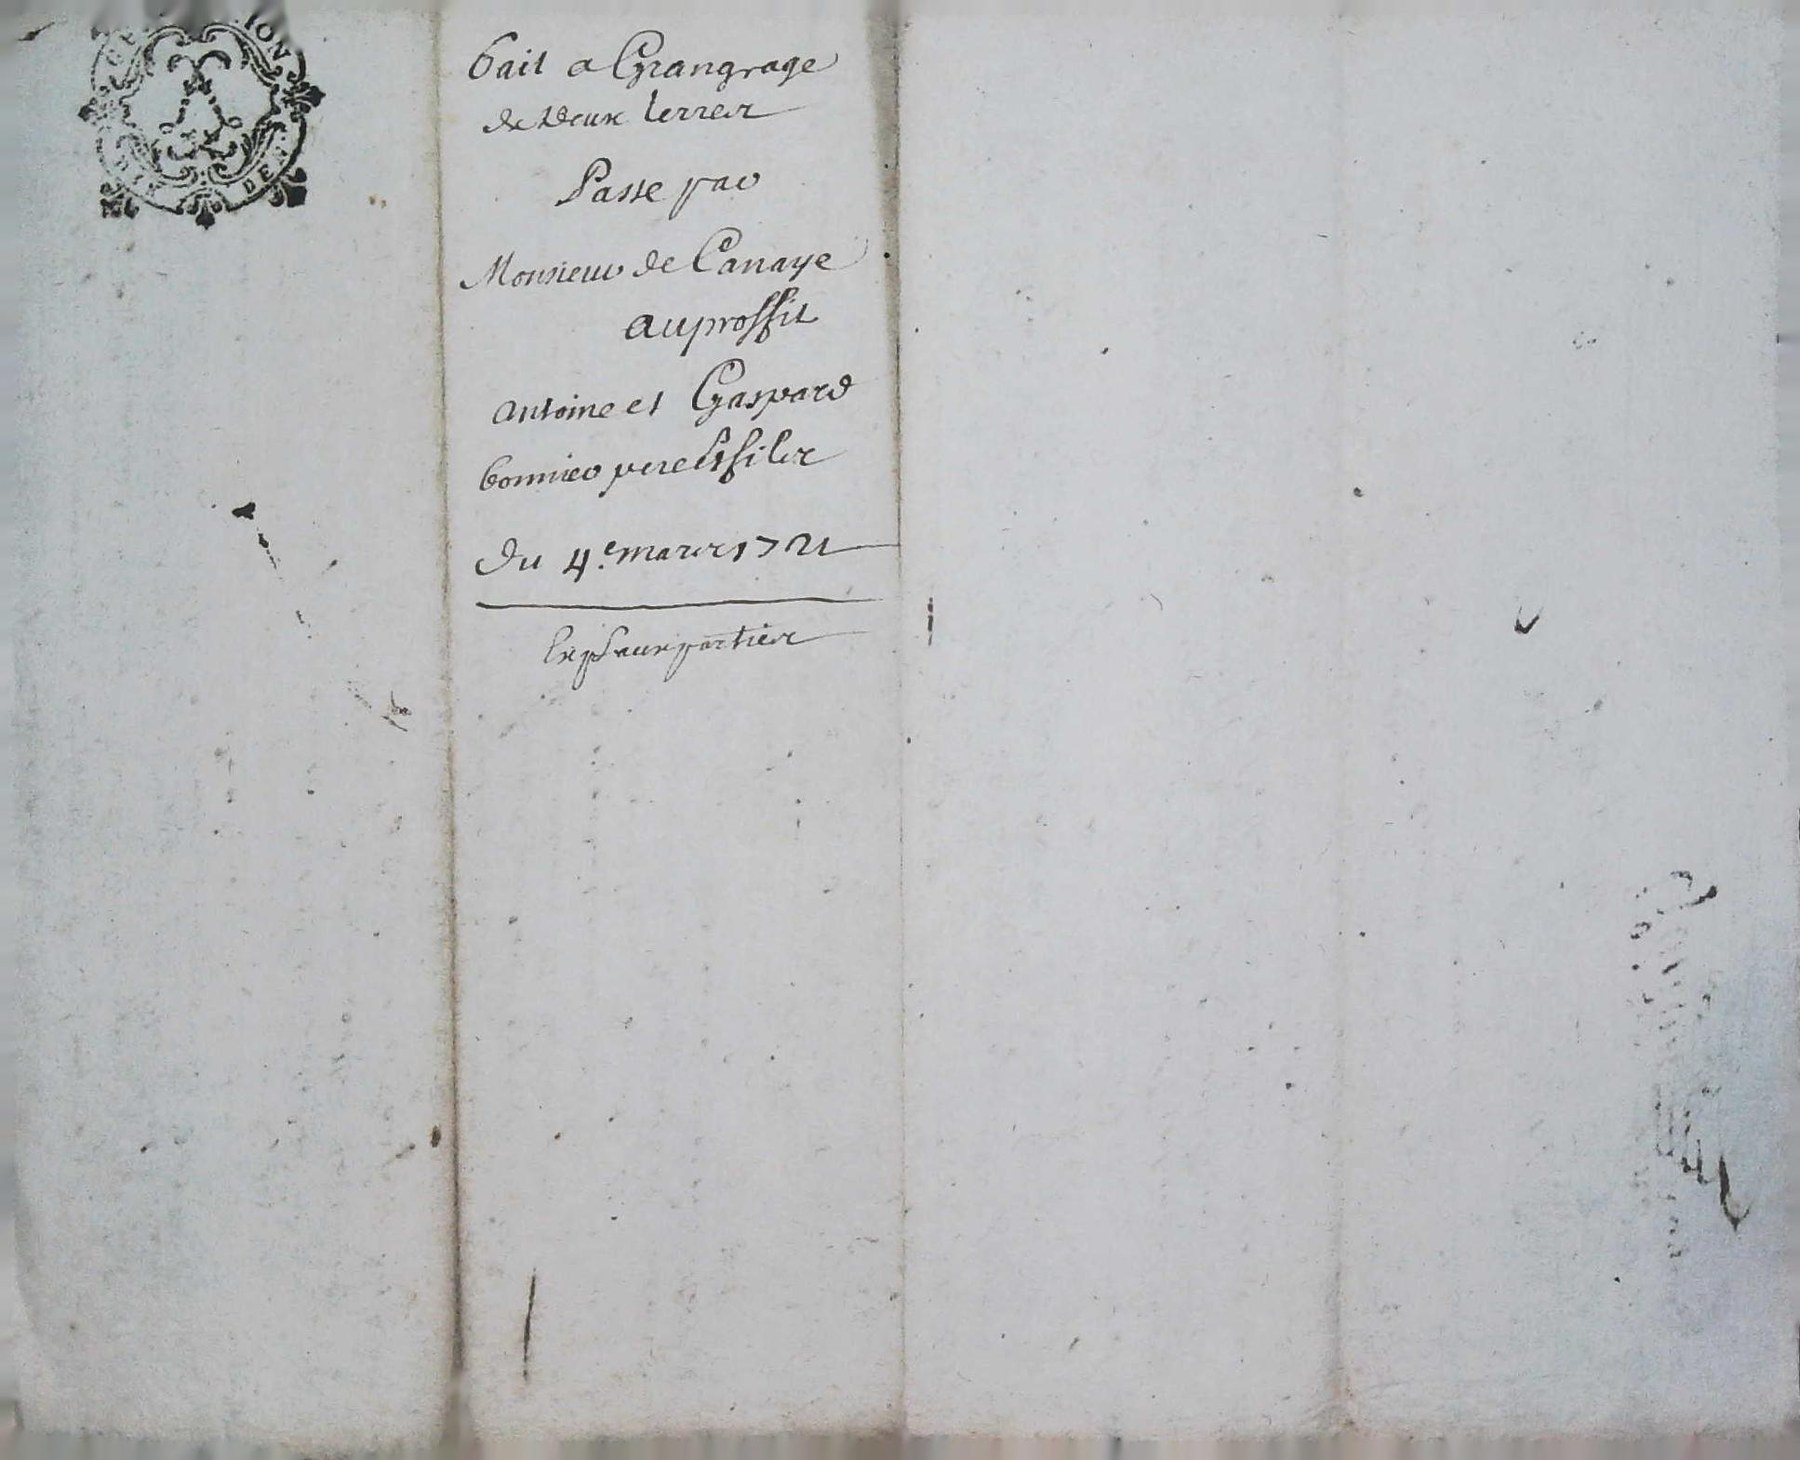 ION
DE
bail a Grangeage
de deux terres
Passé par
Monsieur de Canaye
au proffit
antoine et Gaspard
bonnier pere et fils
Du 4.e mars 1721
Exp aux parties